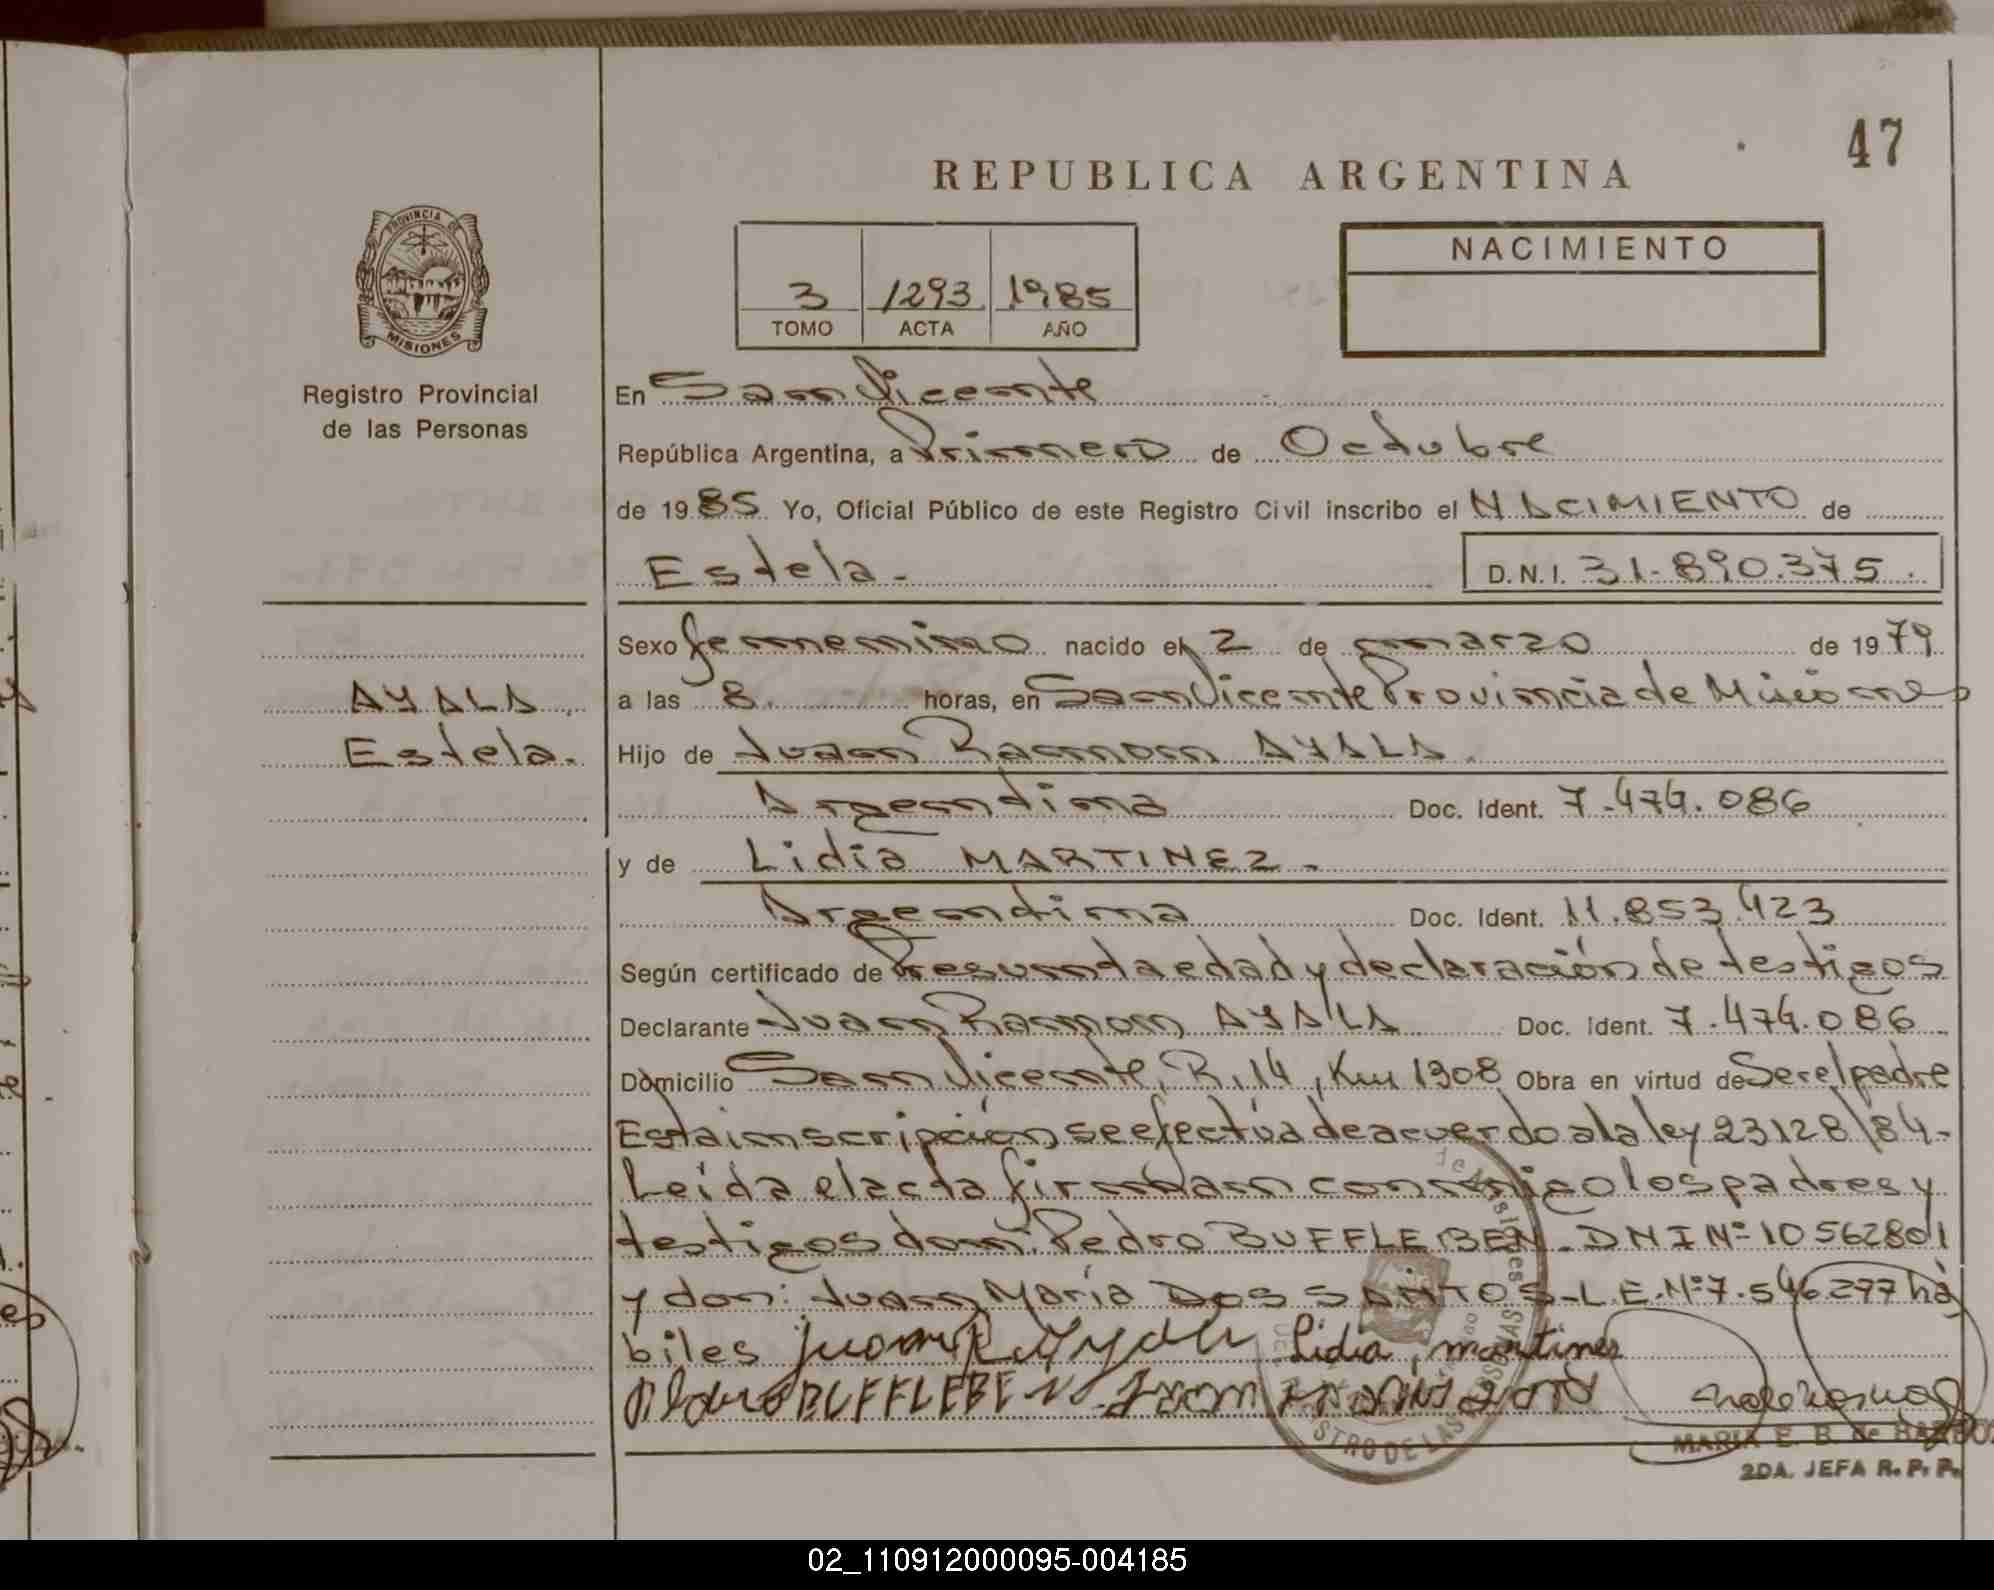 47
REPUBLICA ARGENTINA
PROVINCIA DE
MISIONES
Registro Provincial
de las Personas
3 1293 1985
TOMO ACTA AÑO
NACIMIENTO
En San Vicente
República Argentina, a Primero de Octubre
de 1985 Yo, Oficial Público de este Registro Civil inscribo el NACIMIENTO de
Estela.-
D.N.I. 31.890.375.
AYALA
Estela.
Sexo femenino nacido el 2 de marzo de 1979
a las 8. horas, en San Vicente Provincia de Misiones
Hijo de Juan Ramon AYALA.
Argentina Doc. Ident. 7.474.086
y de Lidia MARTINEZ.-
Argentina Doc. Ident. 11.853.423
Según certificado de Presunta edad y declaración de testigos
Declarante Juan Ramon AYALA Doc. Ident. 7.474.086
Domicilio San Vicente, R, 14, Km 1308 Obra en virtud de Ser el padre
Esta inscripción se efectúa de acuerdo a la ley 23128/84.-
Leída el acta firman conmigo los padres y
testigos don: Pedro BUFFLEBEN. DNI Nº 10562801
y don: Juan María DOS SANTOS-L.E.Nº 7.546.277 há
biles Juan R Ayala Lidia, martines
Pedro BUFFLEBEN Juan
MARIA E. B. de
2DA. JEFA R. P. P.
02_110912000095-004185